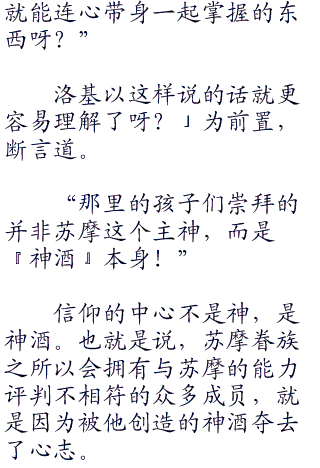 就能连心带身一起掌握的东
西呀？”
洛基以这样说的话就更
容易理解了呀？」为前置，
断言道。
“那里的孩子们崇拜的
并非苏摩这个主神，而是
『神酒』本身！”
信仰的中心不是神，是
神酒。也就是说，苏摩眷族
之所以会拥有与苏摩的能力
评判不相符的众多成员，就
是因为被他创造的神酒夺去
了心志。